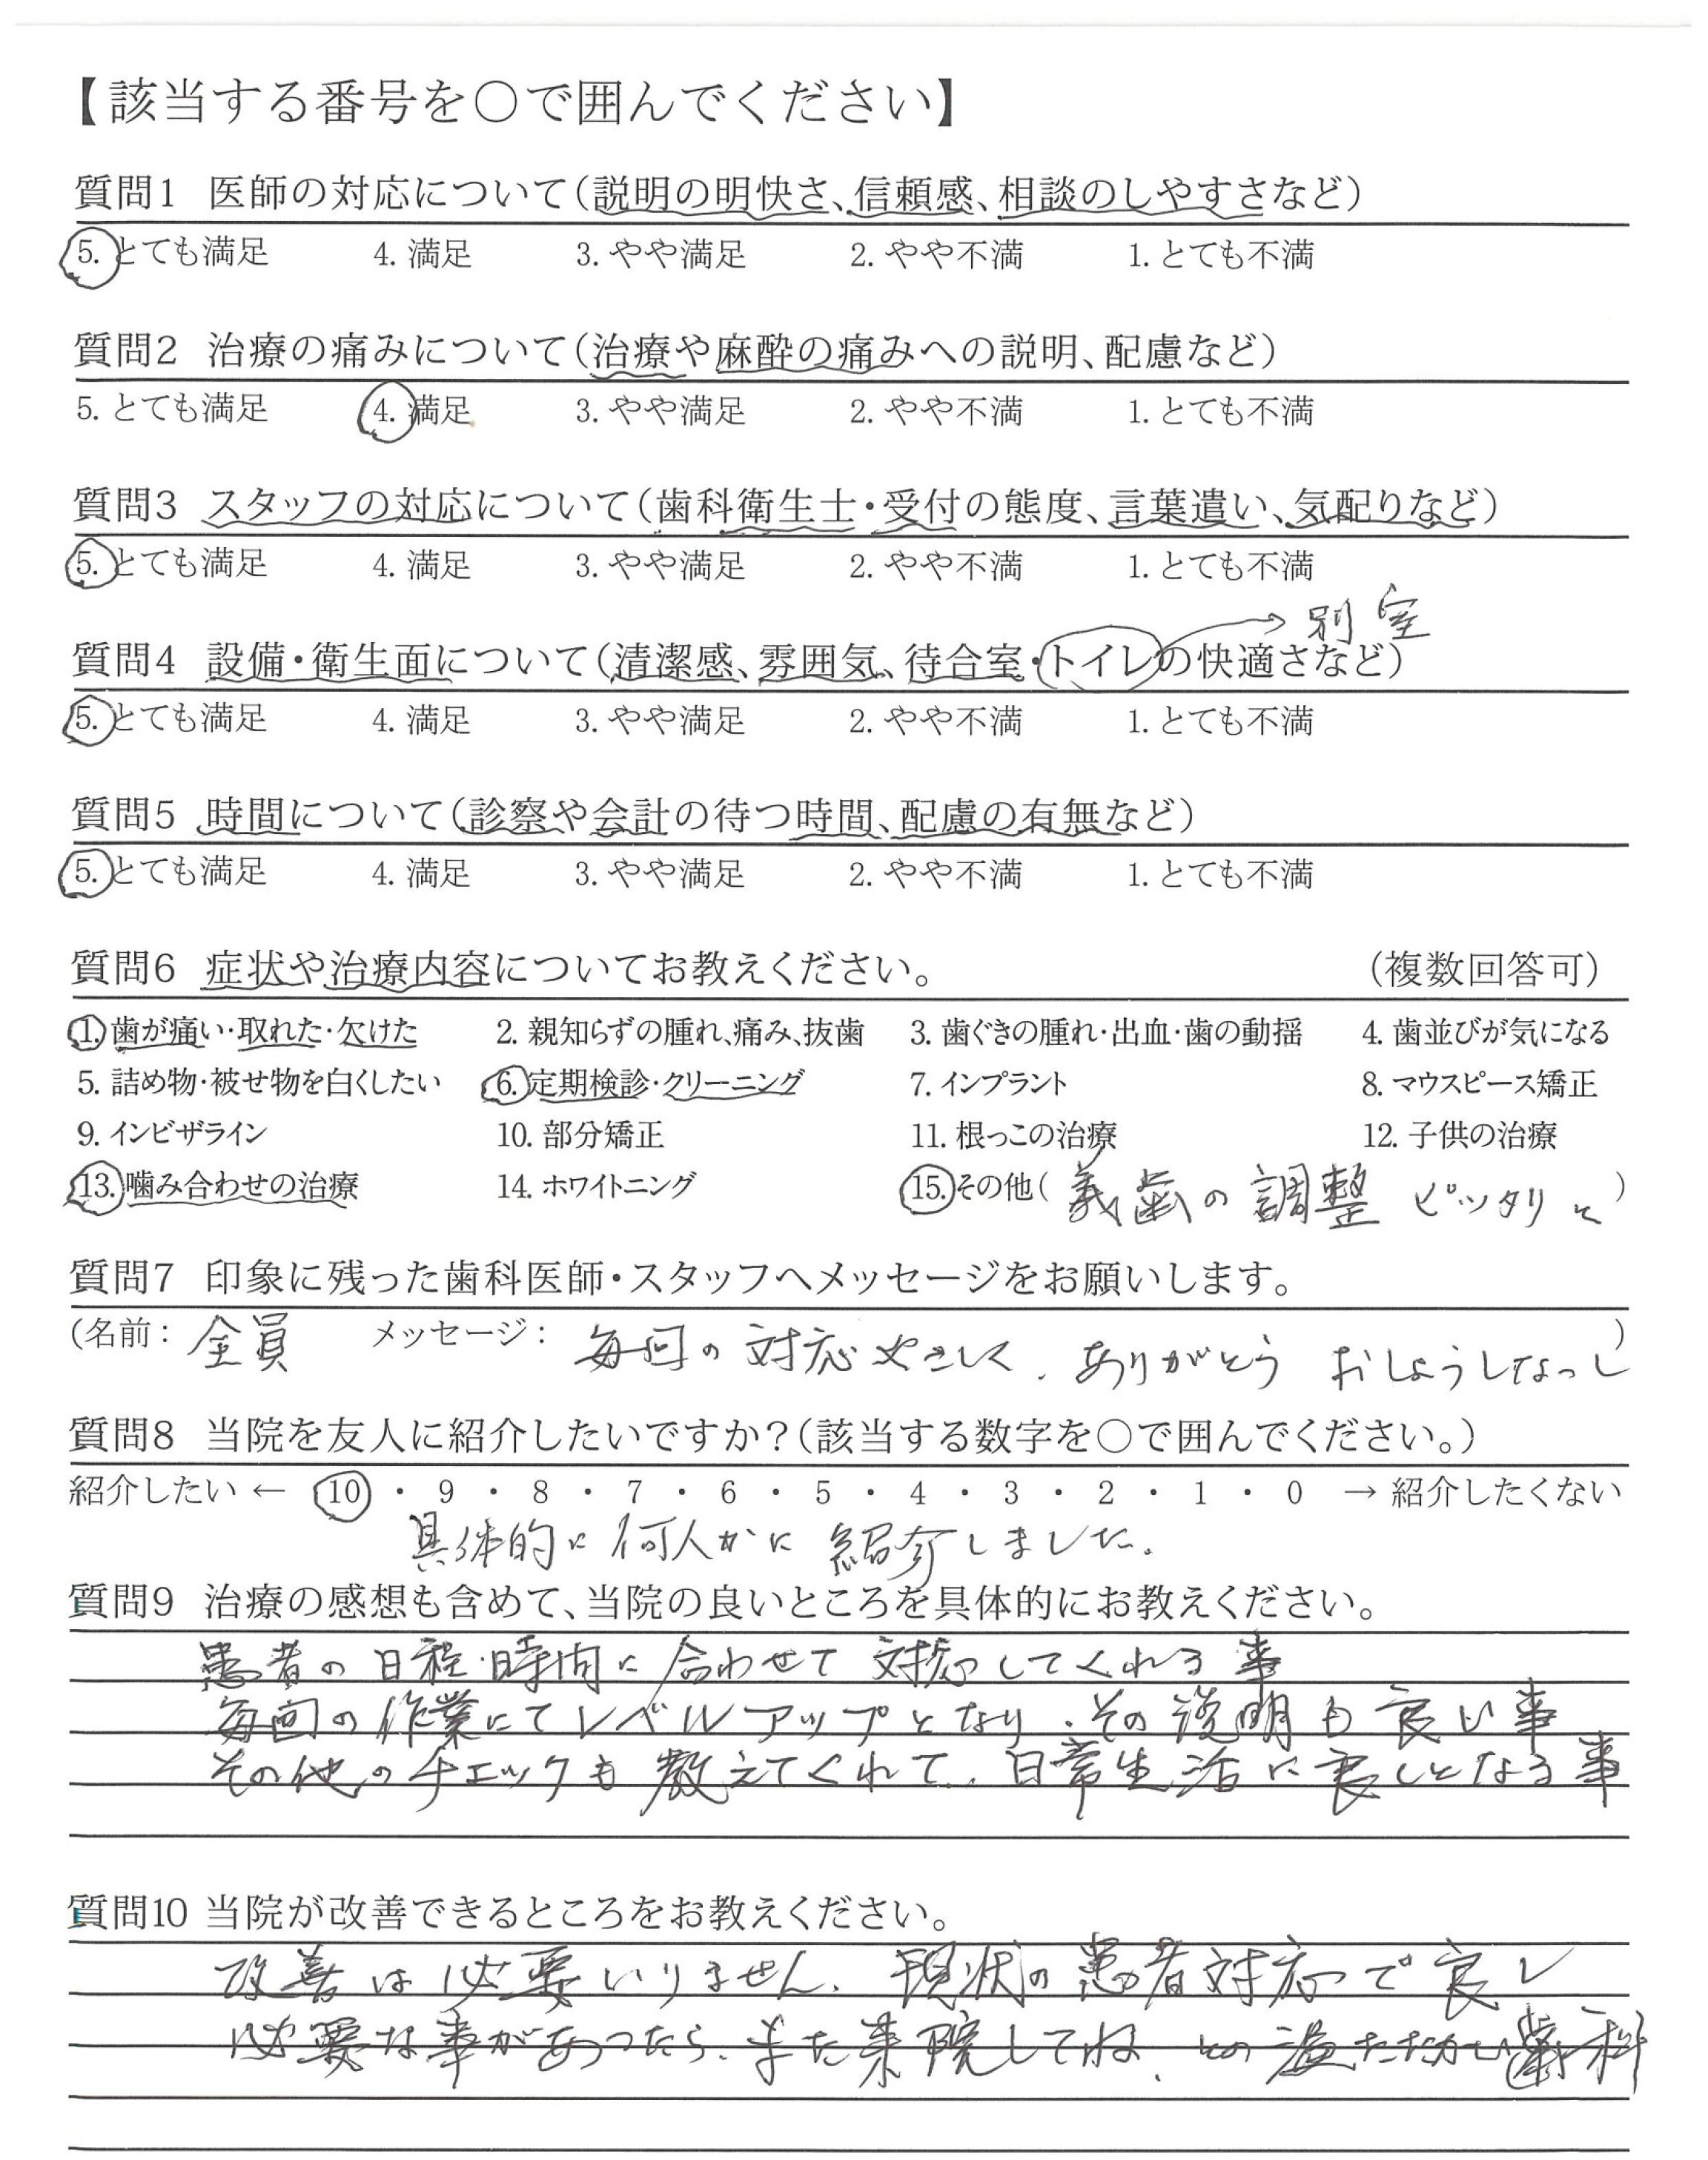 【該当する番号を〇で囲んでください】
質問1 医師の対応について(説明の明快さ、信頼感、相談のしやすさなど)
5. とても満足 4. 満足 3. やや満足 2. やや不満 1. とても不満
質問2 治療の痛みについて(治療や麻酔の痛みへの説明、配慮など)
5. とても満足 4. 満足 3. やや満足 2. やや不満 1. とても不満
質問3 スタッフの対応について(歯科衛生士・受付の態度、言葉遣い、気配りなど)
5. とても満足 4. 満足 3. やや満足 2. やや不満 1. とても不満
→ 別室
質問4 設備・衛生面について(清潔感、雰囲気、待合室・トイレの快適さなど)
5. とても満足 4. 満足 3. やや満足 2. やや不満 1. とても不満
質問5 時間について(診察や会計の待つ時間、配慮の有無など)
5. とても満足 4. 満足 3. やや満足 2. やや不満 1. とても不満
質問6 症状や治療内容についてお教えください。 (複数回答可)
1. 歯が痛い・取れた・欠けた 2. 親知らずの腫れ、痛み、抜歯 3. 歯ぐきの腫れ・出血・歯の動揺 4. 歯並びが気になる
5. 詰め物・被せ物を白くしたい 6. 定期検診・クリーニング 7. インプラント 8. マウスピース矯正
9. インビザライン 10. 部分矯正 11. 根っこの治療 12. 子供の治療
13. 噛み合わせの治療 14. ホワイトニング 15. その他( 義歯の調整 ピッタリと )
質問7 印象に残った歯科医師・スタッフへメッセージをお願いします。
(名前: 全員 メッセージ: 毎回の対応やさしく、ありがとう おしょうしなっし )
質問8 当院を友人に紹介したいですか?(該当する数字を〇で囲んでください。)
紹介したい ← 10 ・ 9 ・ 8 ・ 7 ・ 6 ・ 5 ・ 4 ・ 3 ・ 2 ・ 1 ・ 0 → 紹介したくない
具体的に何人かに紹介しました。
質問9 治療の感想も含めて、当院の良いところを具体的にお教えください。
患者の日程・時間に合わせて対応してくれる事
毎回の作業にてレベルアップとなり、その説明も良い事
その他のチェックも教えてくれて、日常生活に良しとなる事
質問10 当院が改善できるところをお教えください。
改善は必要いりません、現状の患者対応で良し
必要な事があったら、また来院してね、との温たたかい歯科